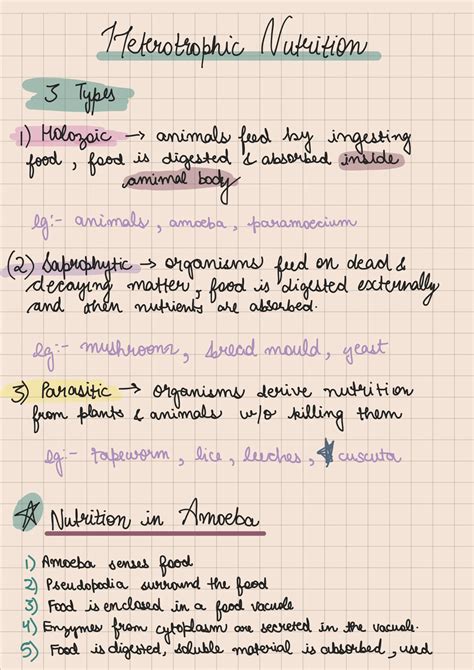 Heterotrophic Nutrition
3 Types
1) Holozoic → animals feed by ingesting
food, food is digested & absorbed inside
animal body
eg:- animals, amoeba, paramoecium
(2) Saprophytic → organisms feed on dead &
decaying matter, food is digested externally
and then nutrients are absorbed.
eg:- mushrooms, bread mould, yeast
3) Parasitic → organisms derive nutrition
from plants & animals w/o killing them
eg:- tapeworm, lice, leeches, ★ cuscuta
☆ Nutrition in Amoeba
1) Amoeba senses food
2) Pseudopodia surround the food
3) Food is enclosed in a food vacuole
4) Enzymes from cytoplasm are secreted in the vacuole.
5) Food is digested, soluble material is absorbed, used